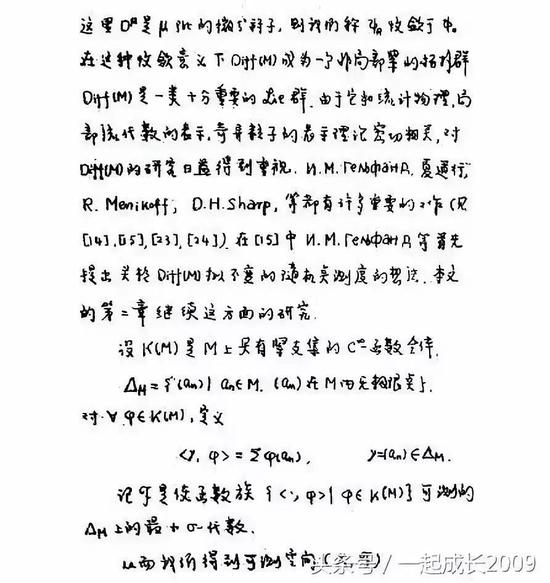 这里 D^μ 是 μ 次的微分算子, 则我们称 φn 收敛于 φ.
在这种收敛意义下 Diff(M) 成为一个非局部紧的拓扑群
Diff(M) 是一类十分重要的 Lie 群. 由于它和统计物理, 局
部流代数的表示, 奇异粒子的表示理论密切相关, 对
Diff(M) 的研究日益得到重视. И.М.Гельфанд, 夏道行,
R. Menikoff, D.H.Sharp, 等都有许多重要的工作 (见
[14],[15],[23],[24]) 在[15]中 И.М.Гельфанд 等首先
提出关于 Diff(M) 拟不变的随机点测度的想法. 本文
的第二章继续这方面的研究.
设 K(M) 是 M 上具有紧支集的 C^∞ 函数全体.
Δ_M = {(an) | an∈M. (an) 在 M 内无极限点}.
对 ∀ φ∈K(M), 定义
<γ, φ> = Σφ(an), γ=(an)∈Δ_M.
记 是使函数族 {<·, φ> | φ∈K(M)} 可测的
Δ_M 上的最小 σ-代数.
从而我们得到可测空间 (
头条号 / 一起成长2009